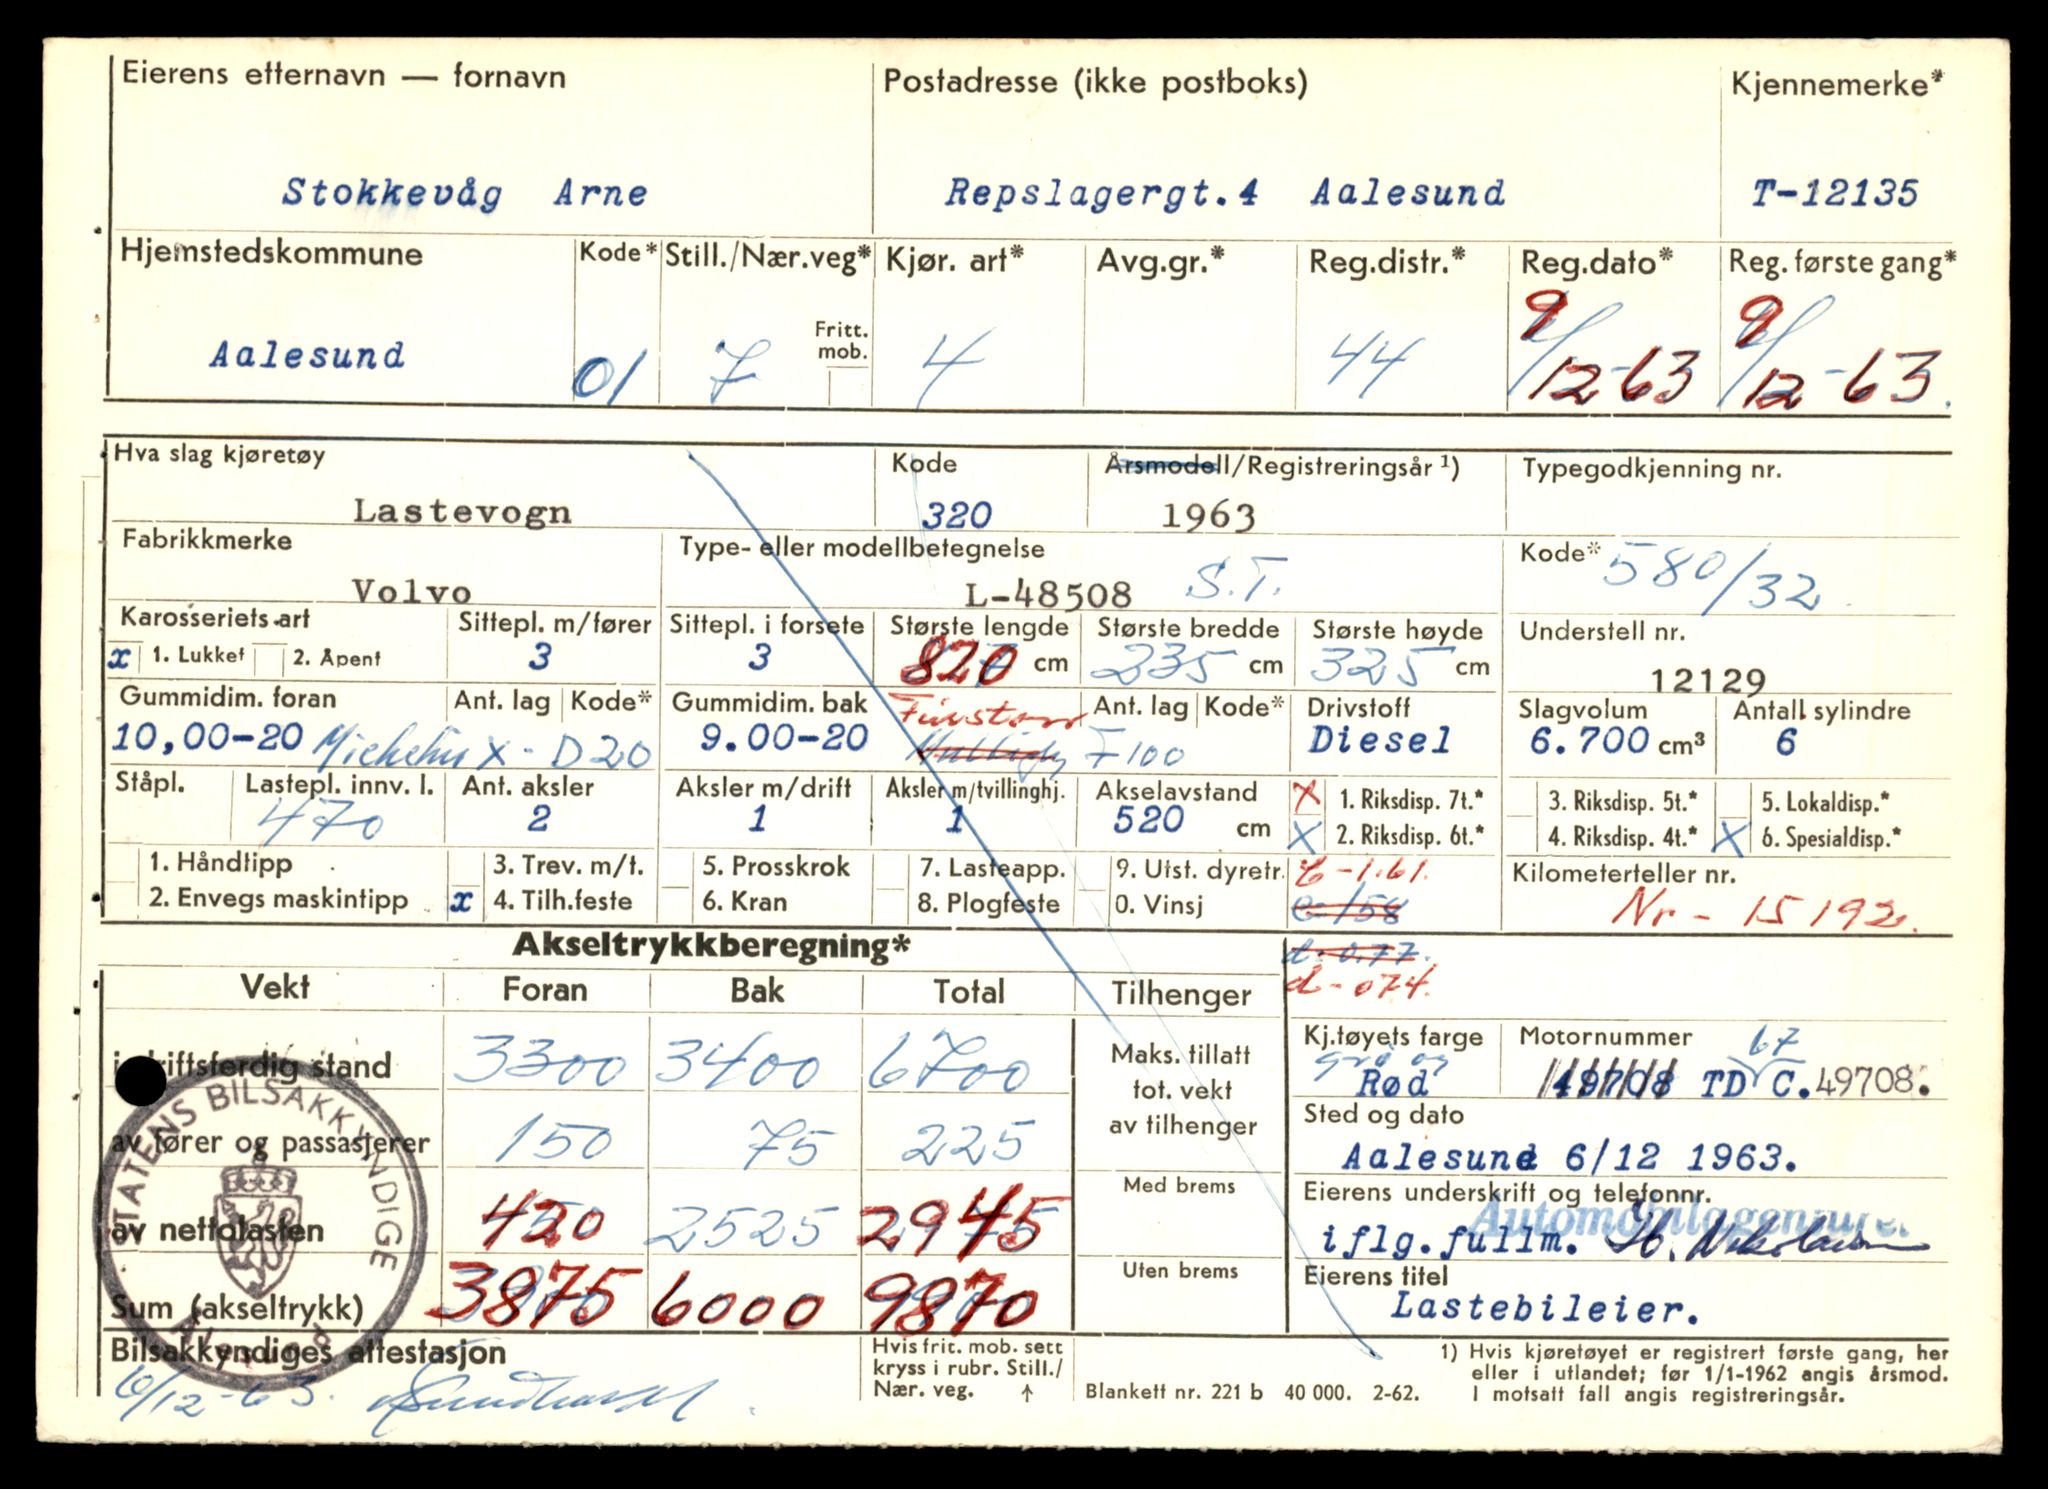 Eierens etternavn — fornavn Postadresse (ikke postboks) Kjennemerke*
Stokkevåg Arne Repslagergt.4 Aalesund T-12135
Hjemstedskommune Kode* Still./Nær.veg* Kjør. art* Avg.gr.* Reg.distr.* Reg.dato* Reg. første gang*
Fritt. mob.
Aalesund 01 7 4 44 9/12-63 9/12-63.
Hva slag kjøretøy Kode Årsmodell/Registreringsår ¹) Typegodkjenning nr.
Lastevogn 320 1963
Fabrikkmerke Type- eller modellbetegnelse Kode* 580/32
Volvo L-48508 S.T.
Karosseriets art Sittepl. m/fører Sittepl. i forsete Største lengde Største bredde Største høyde Understell nr.
x 1. Lukket 2. Åpent 3 3 820 cm 235 cm 325 cm 12129
Gummidim. foran Ant. lag Kode* Gummidim. bak Ant. lag Kode* Drivstoff Slagvolum Antall sylindre
10,00-20 X - D20 9.00-20 F100 Diesel 6.700 cm³ 6
Ståpl. Lastepl. innv. l. Ant. aksler Aksler m/drift Aksler m/tvillinghj. Akselavstand X 1. Riksdisp. 7t.* 3. Riksdisp. 5t.* 5. Lokaldisp.*
470 2 1 1 520 cm X 2. Riksdisp. 6t.* 4. Riksdisp. 4t.* X 6. Spesialdisp.*
1. Håndtipp 3. Trev. m/t. 5. Prosskrok 7. Lasteapp. 9. Utst. dyretr. C - 1.61. Kilometerteller nr.
2. Envegs maskintipp x 4. Tilh.feste 6. Kran 8. Plogfeste 0. Vinsj Nr - 15192.
Akseltrykkberegning* d - 0.77.
Vekt Foran Bak Total Tilhenger d - 074.
i driftsferdig stand 3300 3400 6700 Maks. tillatt tot. vekt av tilhenger Kj.tøyets farge Motornummer 67
grå og Rød 49708 TD C.49708.
av fører og passasjerer 150 75 225 Sted og dato
Aalesund 6/12 1963.
av nettolasten 420 2525 2945 Med brems Eierens underskrift og telefonnr.
iflg.fullm. H. Nikolaisen
Sum (akseltrykk) 3875 6000 9870 Uten brems Eierens titel
Lastebileier.
STATENS BILSAKKYNDIGE
Ålesund
Bilsakkyndiges attestasjon Hvis frit. mob. sett kryss i rubr. Still./ Nær. veg. ↑ Blankett nr. 221 b 40 000. 2-62.
6/12-63.
1) Hvis kjøretøyet er registrert første gang, her
eller i utlandet; før 1/1-1962 angis årsmod.
I motsatt fall angis registreringsår.